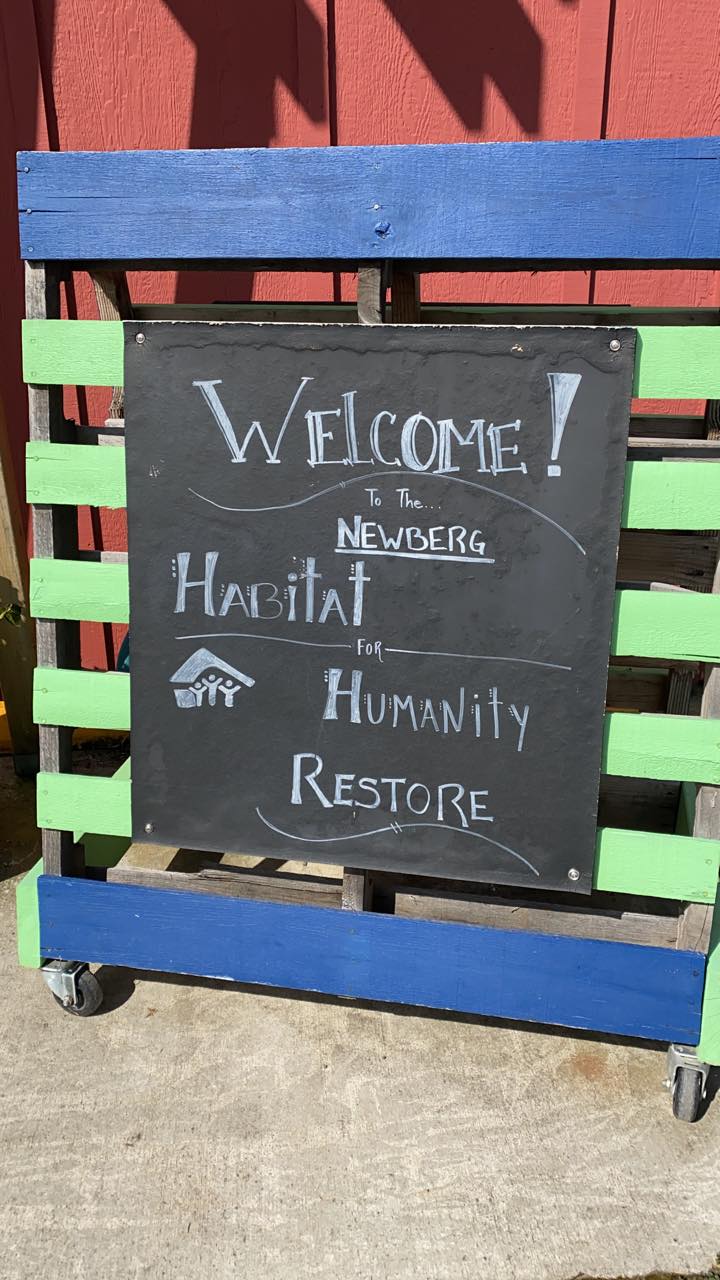 WELCOME!
To The...
NEWBERG
HABitat
FOR
HUMANity
RESTORE